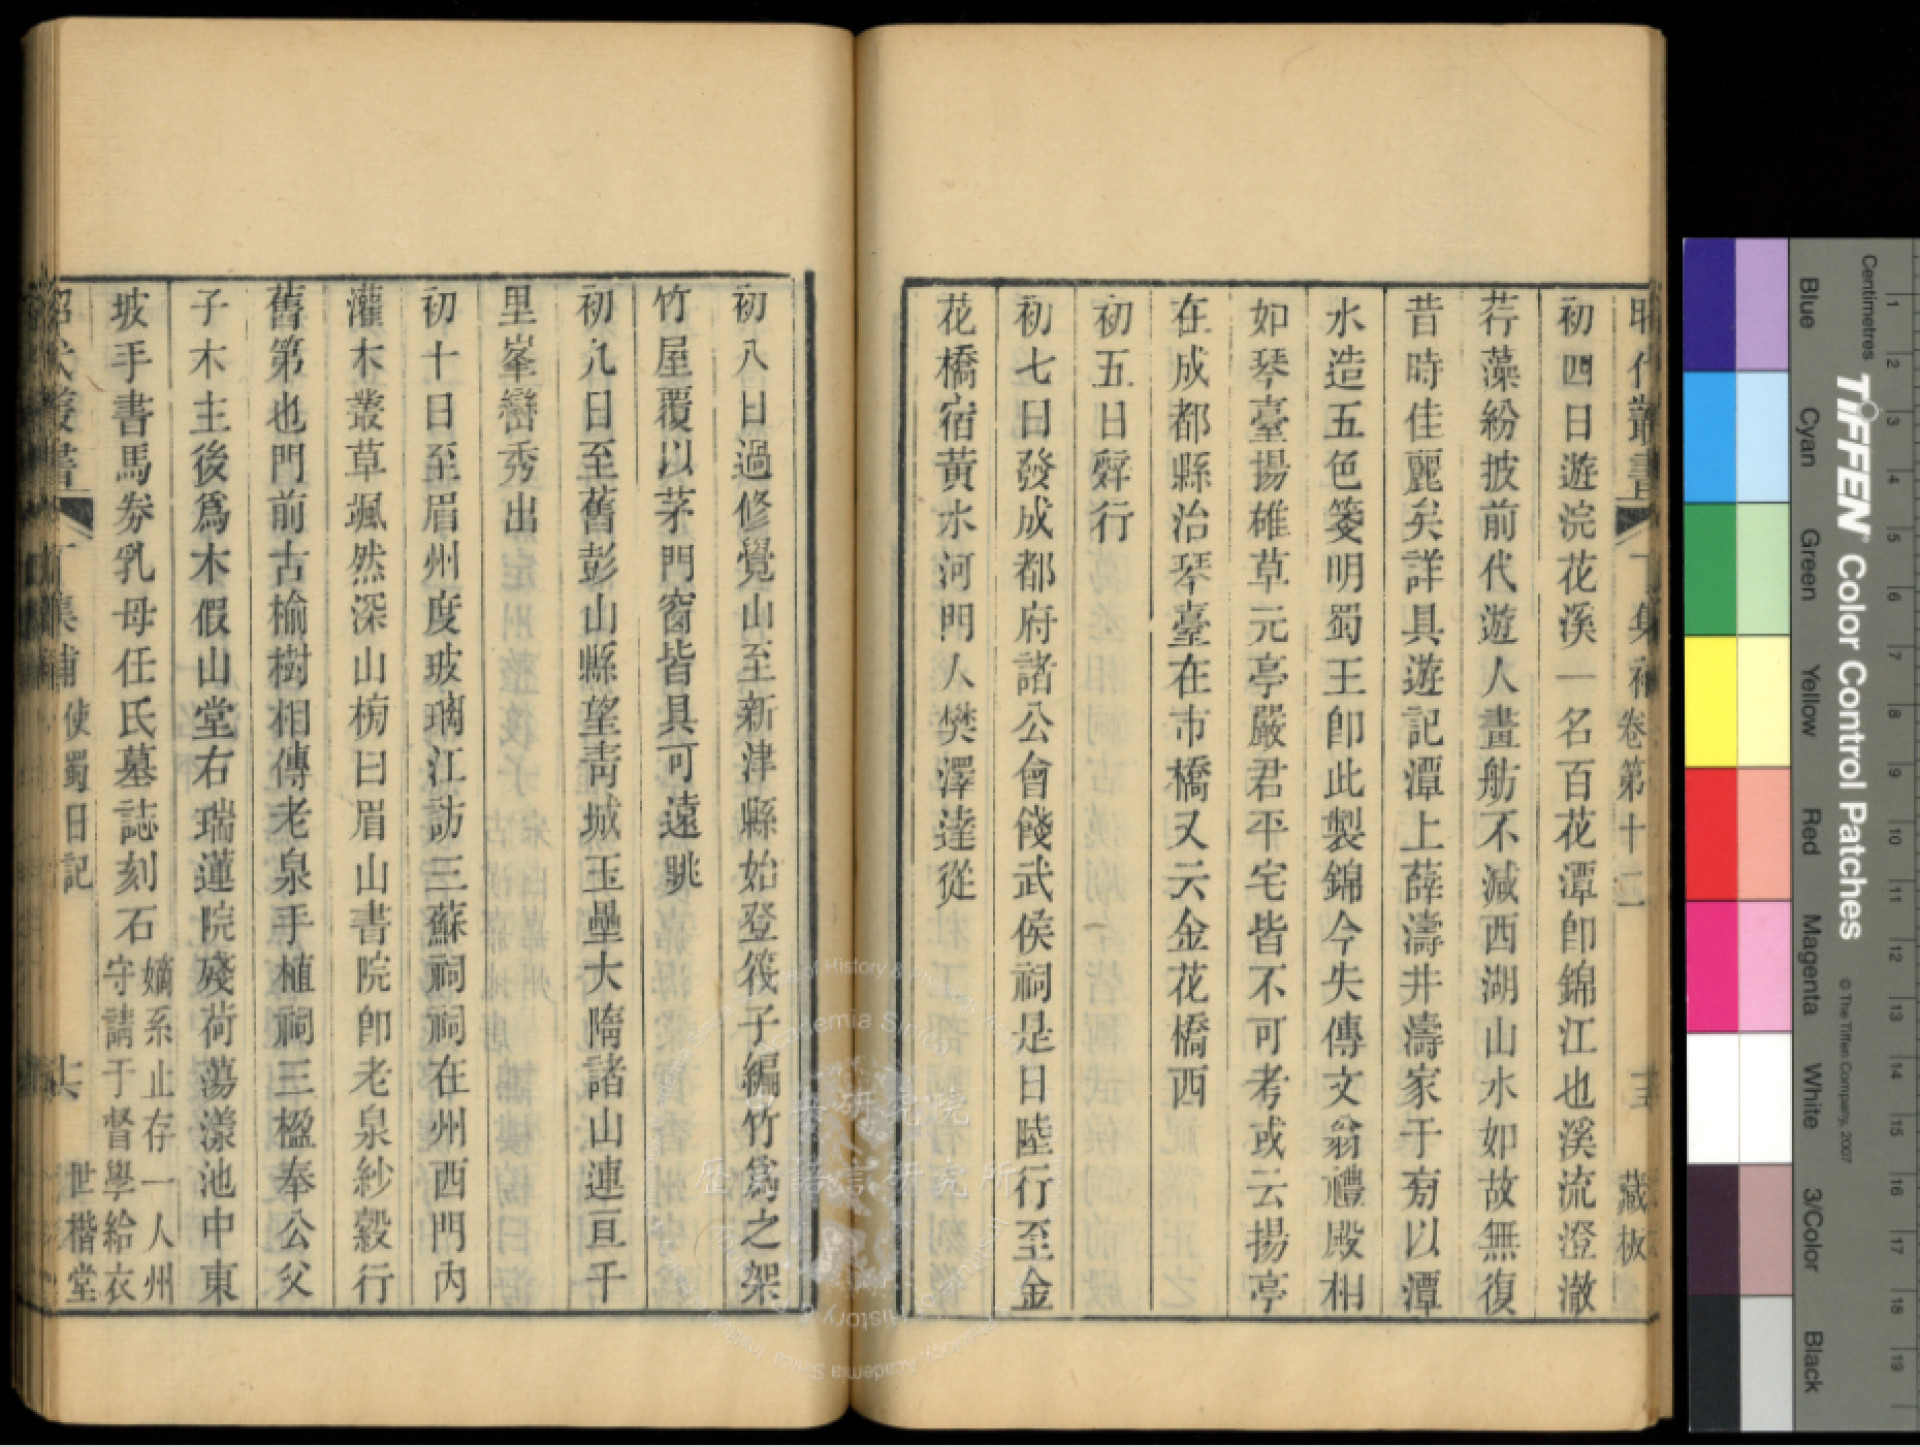 昭代叢書 丁集補 卷第十二 藏板
初四日遊浣花溪一名百花潭卽錦江也溪流澄澈
荇藻紛披前代遊人畫舫不減西湖山水如故無復
昔時佳麗矣詳具遊記潭上薛濤井濤家于旁以潭
水造五色箋明蜀王卽此製錦今失傳文翁禮殿相
如琴臺揚雄草元亭嚴君平宅皆不可考或云揚亭
在成都縣治琴臺在市橋又云金花橋西
初五日辭行
初七日發成都府諸公會餞武侯祠是日陸行至金
花橋宿黃水河門人樊澤達從
初八日過修覺山至新津縣始登筏子編竹爲之架
竹屋覆以茅門窗皆具可遠眺
初九日至舊彭山縣望靑城玉壘大隋諸山連亘千
里峯巒秀出
初十日至眉州度玻璃江訪三蘇祠祠在州西門內
灌木叢草颯然深山榜曰眉山書院卽老泉紗縠行
舊第也門前古榆樹相傳老泉手植祠三楹奉公父
子木主後爲木假山堂右瑞蓮院殘荷蕩漾池中東
坡手書馬券乳母任氏墓誌刻石嫡系止存一人州
守請于督學給衣
昭代叢書 丁集補 使蜀日記 世楷堂
Centimetres
1 2 3 4 5 6 7 8 9 10 11 12 13 14 15 16 17 18 19
TIFFEN Color Control Patches © The Tiffen Company, 2007
Blue Cyan Green Yellow Red Magenta White 3/Color Black